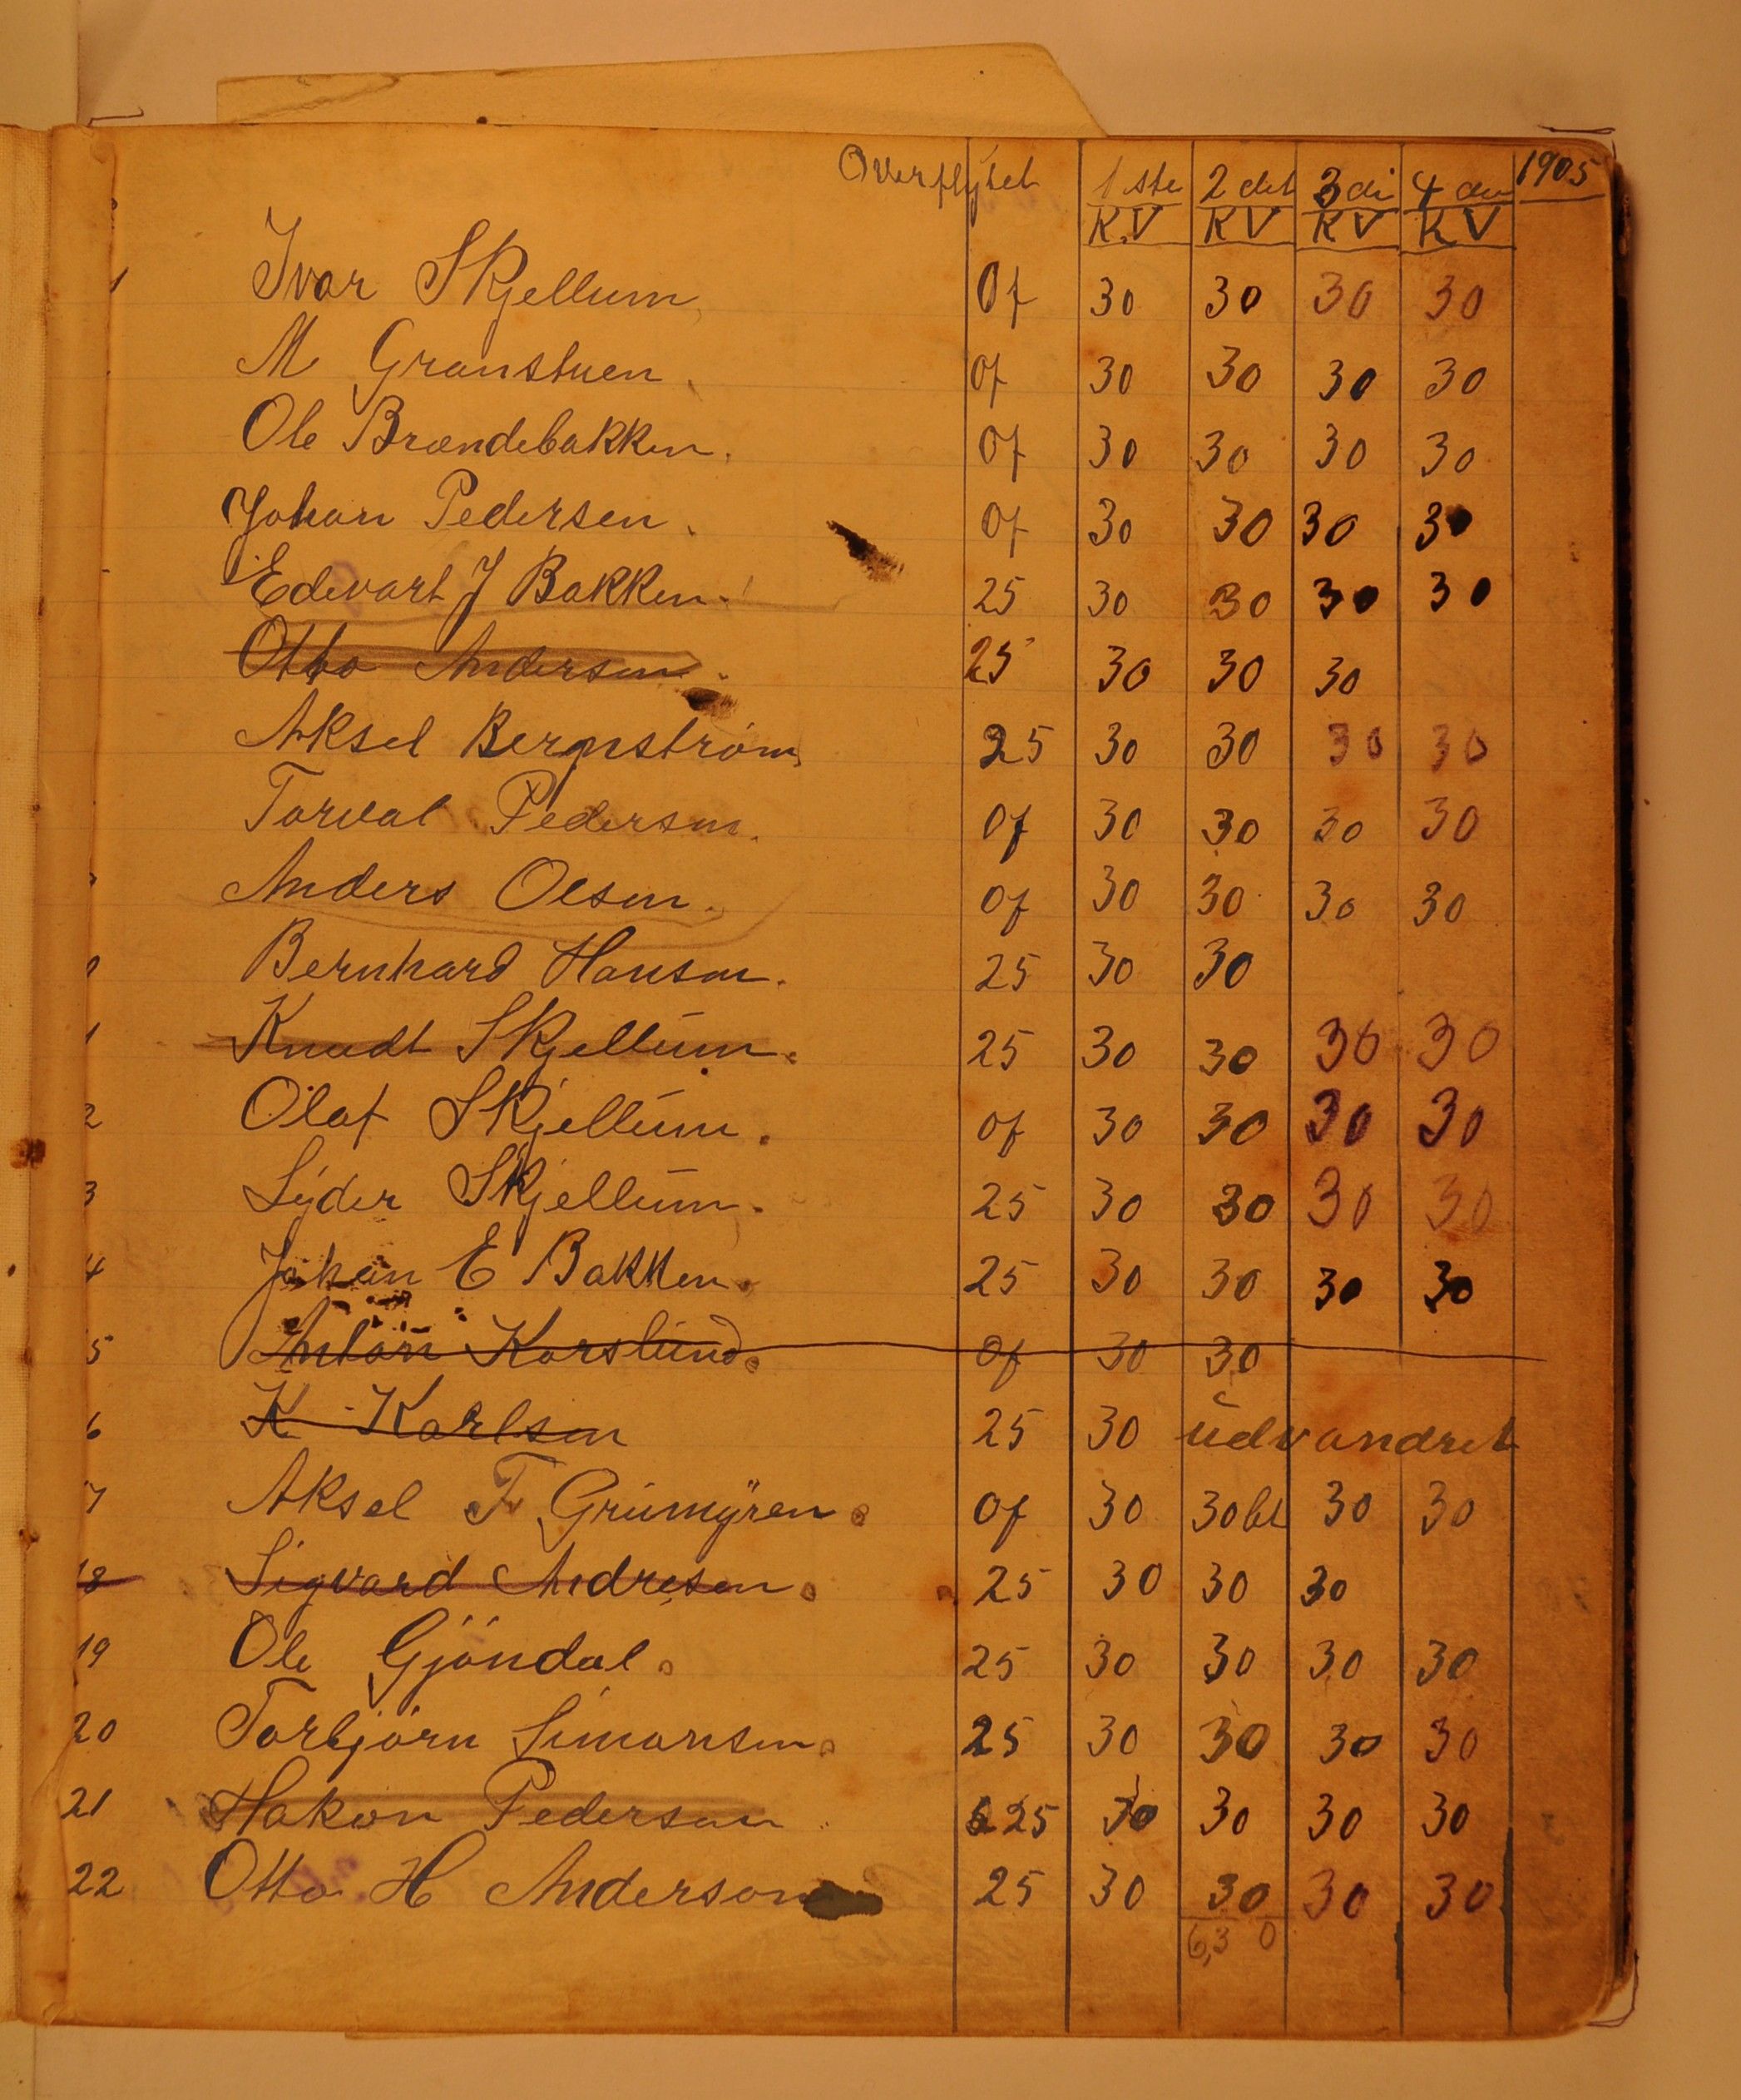 Overflyttet 1ste 2det 3di 4de 1905
K.V KV KV KV
1 Ivar Skjellum Of 30 30 30 30
M Granstuen. Of 30 30 30 30
Ole Brændebakken. Of 30 30 30 30
Johan Pedersen. Of 30 30 30 30
Edevart J Bakken. 25 30 30 30 30
Otto Andersen. 25 30 30 30
Aksel Bernström 25 30 30 30 30
Torval Pedersen. Of 30 30 30 30
Anders Olsen. Of 30 30 30 30
Bernhard Hansen. 25 30 30
1 Knudt Skjellum. 25 30 30 30 30
2 Olaf Skjellum. Of 30 30 30 30
3 Syder Skjellum. 25 30 30 30 30
4 Johan E Bakken. 25 30 30 30 30
5 Anton Korslund. Of 30 30
6 K Karlsen 25 30 udvandret
7 Aksel F Grumyren. Of 30 30 bt 30 30
18 Sigvard Andresen. 25 30 30 30
19 Ole Gjöndal. 25 30 30 30 30
20 Torbjörn Simonsen. 25 30 30 30 30
21 Hakon Pedersen 25 30 30 30 30
22 Otto H Anderson 25 30 30 30 30
6,30